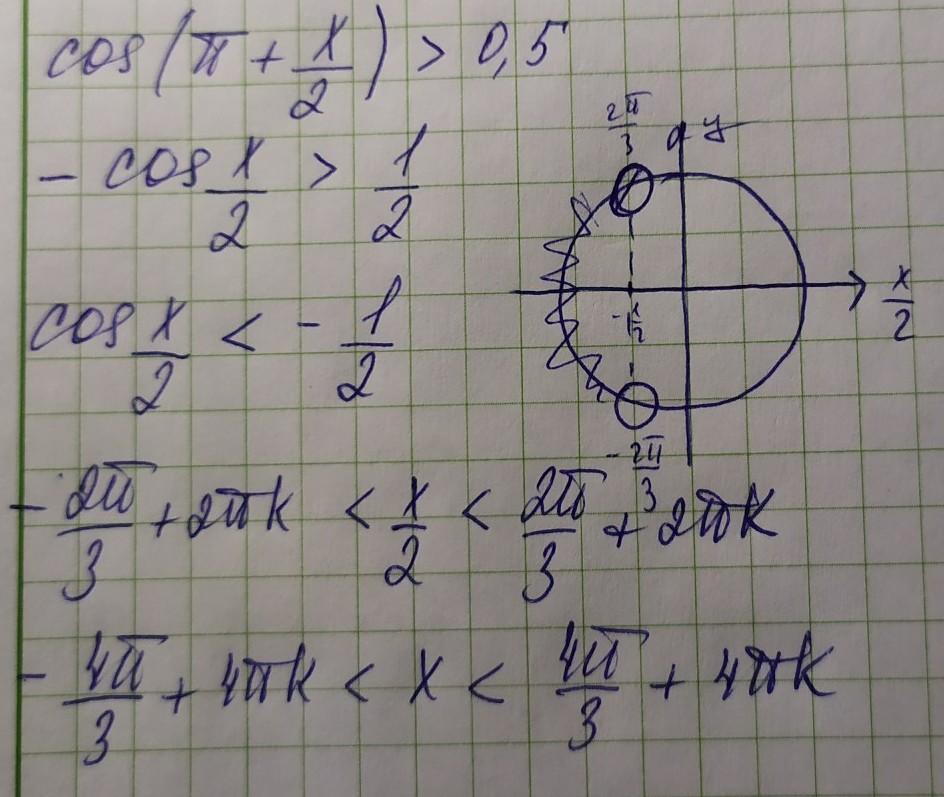 cos(π + x/2) > 0,5
- cos x/2 > 1/2
cos x/2 < - 1/2
2π/3
y
x/2
- 1/2
- 2π/3
- 2π/3 + 2πk < x/2 < 2π/3 + 2πk
- 4π/3 + 4πk < x < 4π/3 + 4πk